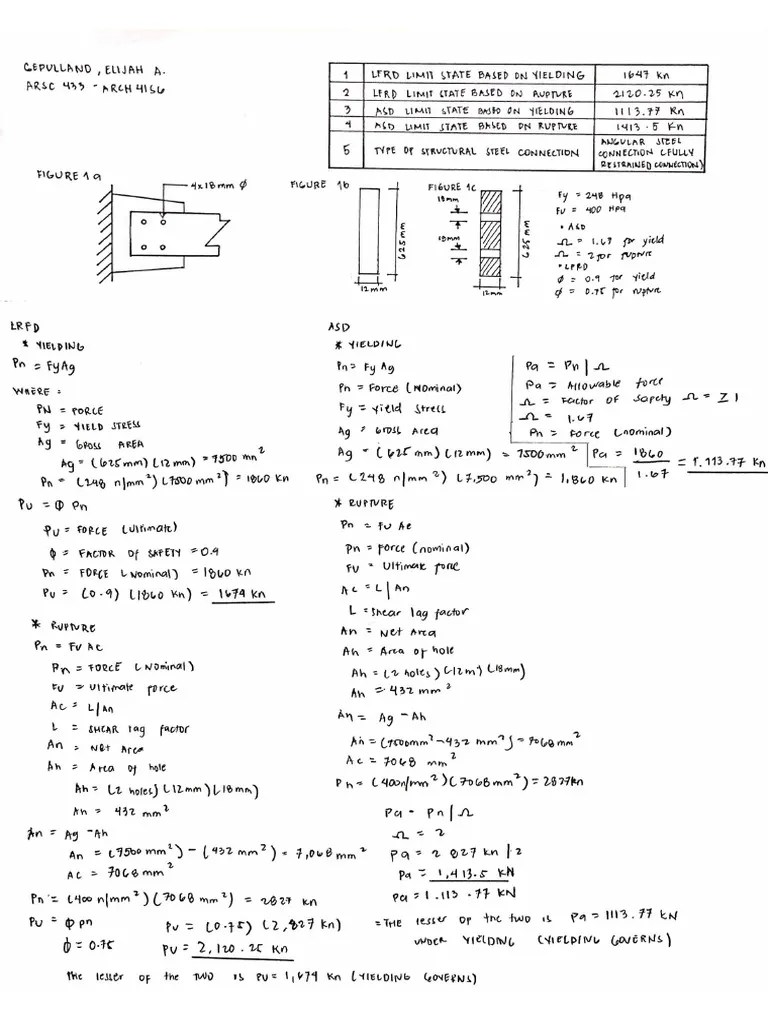 GEPULLAND, ELIJAH A.
ARSC 433 - ARCH 41S6
1 LFRD LIMIT STATE BASED ON YIELDING 1647 Kn
2 LFRD LIMIT STATE BASED ON RUPTURE 2120.25 Kn
3 ASD LIMIT STATE BASED ON YIELDING 1113.77 Kn
4 ASD LIMIT STATE BASED ON RUPTURE 1413.5 Kn
5 TYPE OF STRUCTURAL STEEL CONNECTION ANGULAR STEEL
CONNECTION (FULLY
RESTRAINED CONNECTION)
FIGURE 1a
4x18mm ϕ
FIGURE 1b
625mm
12mm
FIGURE 1c
18mm
18mm
625mm
12mm
Fy = 248 Mpa
Fu = 400 Mpa
• ASD
Ω = 1.67 for yield
Ω = 2 for rupture
• LFRD
ϕ = 0.9 for yield
ϕ = 0.75 for rupture
LRFD
* YIELDING
Pn = FyAg
WHERE =
PN = FORCE
Fy = YIELD STRESS
Ag = GROSS AREA
Ag = (625mm)(12mm) = 7500 mm²
Pn = (248 n/mm²)(7500 mm²) = 1860 Kn
Pu = ϕ Pn
Pu = FORCE (Ultimate)
ϕ = FACTOR OF SAFETY = 0.9
Pn = FORCE (Nominal) = 1860 Kn
Pu = (0.9)(1860 Kn) = 1674 Kn
* RUPTURE
Pn = Fu Ae
Pn = FORCE (Nominal)
Fu = Ultimate force
Ac = L/An
L = SHEAR lag factor
An = Net Area
Ah = Area of hole
Ah = (2 holes)(12mm)(18mm)
An = 432 mm²
An = Ag - Ah
An = (7500 mm²) - (432 mm²) = 7,068 mm²
Ac = 7068 mm²
Pn = (400 n/mm²)(7068 mm²) = 2827 Kn
Pu = ϕ pn Pu = (0.75)(2,827 Kn)
ϕ = 0.75 Pu = 2,120.25 Kn
The lesser of the two is Pu = 1,674 Kn (YIELDING GOVERNS)
ASD
* YIELDING
Pn = Fy Ag
Pn = Force (Nominal)
Fy = Yield Stress
Ag = Gross Area
Ag = (625 mm)(12 mm) = 7500mm²
Pn = (248 n/mm²)(7,500 mm²) = 1,860 Kn
Pa = Pn/Ω
Pa = Allowable force
Ω = Factor of Safety Ω = Z 1
Ω = 1.67
Pn = Force (nominal)
Pa = 1860 / 1.67 = 1,113.77 Kn
* RUPTURE
Pn = Fu Ae
Pn = Force (nominal)
Fu = Ultimate force
Ac = L/An
L = Shear lag factor
An = Net Area
Ah = Area of hole
Ah = (2 holes)(12m)(18mm)
An = 432 mm²
An = Ag - Ah
An = (7500mm² - 432 mm²) = 7068mm²
Ac = 7068 mm²
Pn = (400n/mm²)(7068mm²) = 2827kn
Pa = Pn/Ω
Ω = 2
Pa = 2 827 kn/2
Pa = 1,413.5 KN
Pa = 1.113.77 KN
= THE lesser of the two is Pa = 1113.77 KN
UNDER YIELDING (YIELDING GOVERNS)